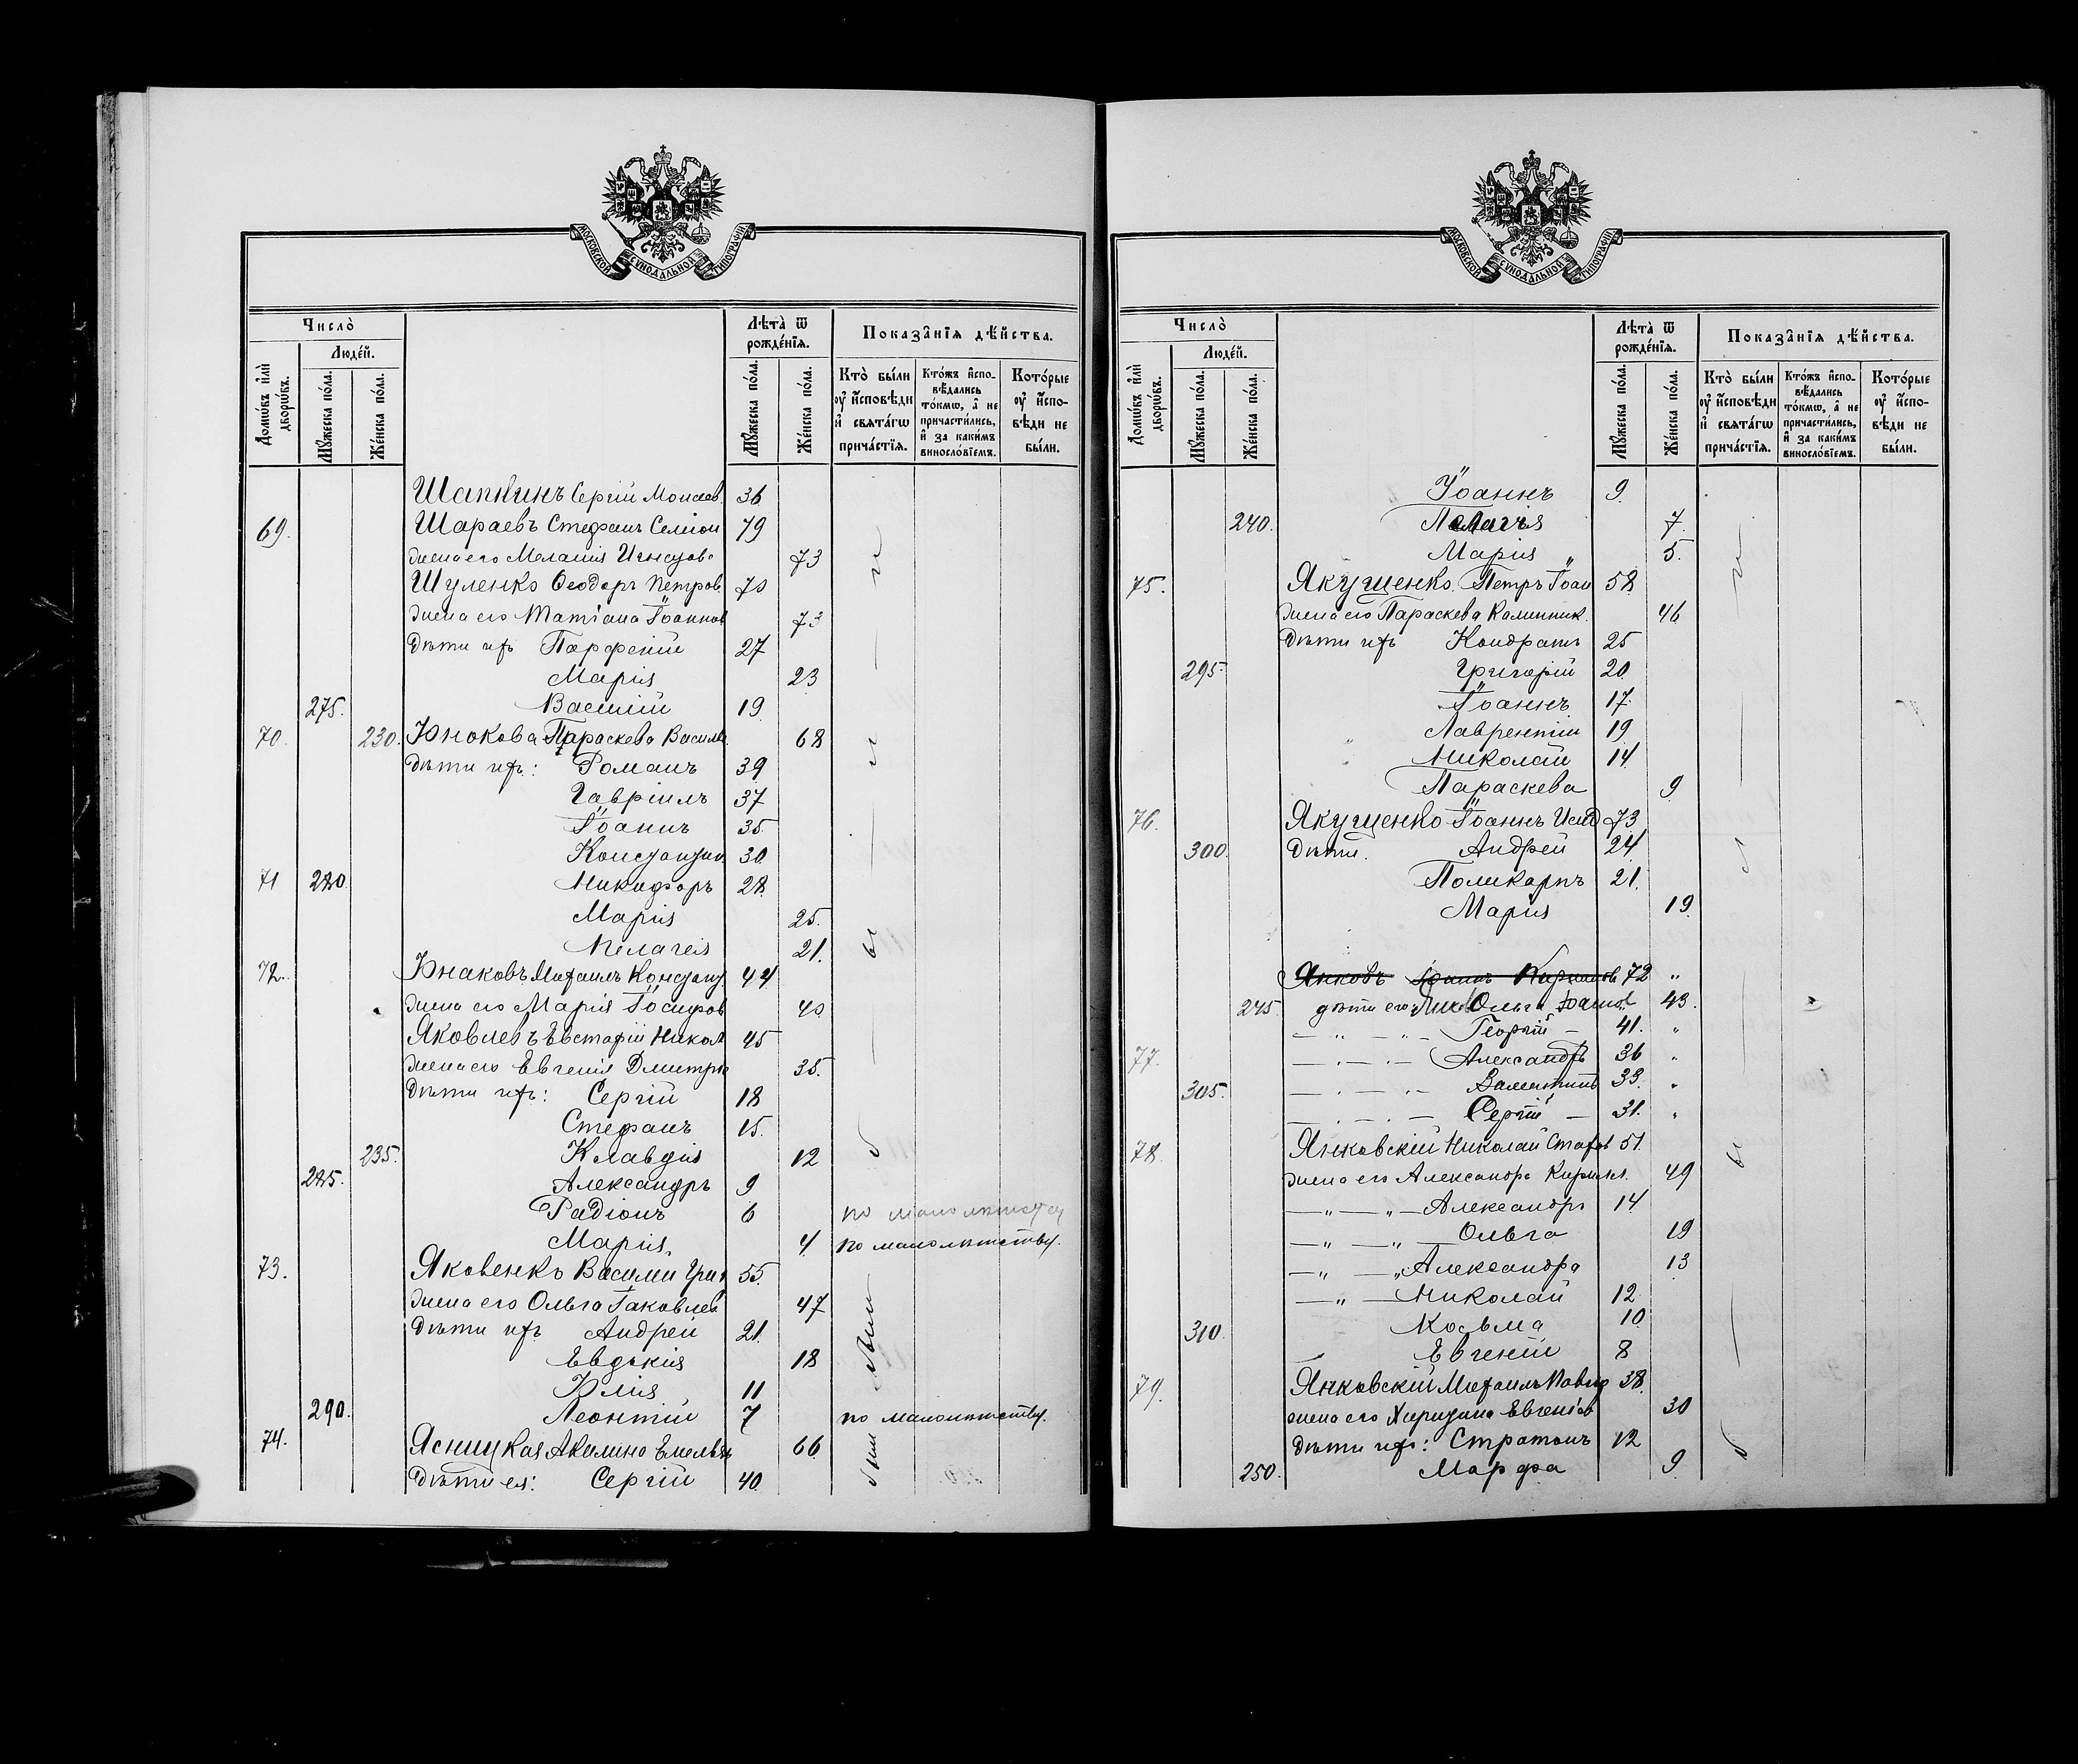 МОСКОВСКОЙ СѴНОДАЛЬНОЙ ТИПОГРАФІИ
Число̀
Люде́й.
Домѡ́въ и҆лѝ дворѡ́въ.
Мꙋ́жеска по́ла.
Же́нска по́ла.
Лѣта̀ ѿ рожде́нїѧ.
Мꙋ́жеска по́ла.
Же́нска по́ла.
Показа̑нїѧ дѣ́йства.
Кто̀ бы́ли оу҆ и҆сповѣди и҆ свѧта́гѡ прича́стїѧ.
Кто́жъ и҆сповѣдались то́кмѡ, а҆ не причасти́лись, и҆ за каки́мъ винослові́емъ.
Кото́рые оу҆ и҆сповѣди не бы́ли.
Шапкинъ Сергій Моисеев. 36
69. Шараевъ Стефанъ Семіон 79
жена его Меланія Игнатова 73
Шуленко Ѳеодоръ Петров. 70
жена его Татіана Іоаннов 73
Дѣти ихъ Парфеній 27
Марія 23
275. Василій 19
70. 230. Юнокова Параскева Василь 68
Дѣти ихъ: Романъ 39
Гавріилъ 37
Іоаннъ 35
Константин 30
71 280 Никифоръ 28
Марія 25.
Пелагея 21.
72. Юнаковъ Михаилъ Констант 44
жена его Марія Іосифов 40
Яковлевъ Евстафій Никол 45
жена его Евгенія Дмитрі 35.
Дѣти ихъ: Сергій 18
Стефанъ 15.
235. Клавдія 12
285. Александръ 9
Радіонъ 6 по малолѣтству
Марія 4 по малолѣтству.
73. Яковенко Василій Григ 55.
жена его Ольга Іаковлев 47
Дѣти ихъ Андрей 21.
Евдокія 18
Юлія 11
290. Леонтій 7 по малолѣтству.
74. Ясницкая Акилина Емельян 66
Дѣти ея: Сергій 40.
были
МОСКОВСКОЙ СѴНОДАЛЬНОЙ ТИПОГРАФІИ
Число̀
Люде́й.
Домѡ́въ и҆лѝ дворѡ́въ.
Мꙋ́жеска по́ла.
Же́нска по́ла.
Лѣта̀ ѿ рожде́нїѧ.
Мꙋ́жеска по́ла.
Же́нска по́ла.
Показа̑нїѧ дѣ́йства.
Кто̀ бы́ли оу҆ и҆сповѣди и҆ свѧта́гѡ прича́стїѧ.
Кто́жъ и҆сповѣдались то́кмѡ, а҆ не причасти́лись, и҆ за каки́мъ винослові́емъ.
Кото́рые оу҆ и҆сповѣди не бы́ли.
Іоаннъ 9.
240. Пелагія 7
Марія 5.
75. Якущенко Петръ Іоан 58
жена его Параскева Калинник. 46
Дѣти ихъ Кондратъ 25
295. Григорій 20
Іоаннъ 17.
Лаврентій 19
Николай 14
Параскева 9
76. Якущенко Іоаннъ Исид 73
300. Дѣти. Андрей 24
Поликарпъ 21.
Марія 19
Янковъ Іоаннъ 72 "
245 дѣти его: Ольга Іоаннов 43.
— " — " — Георгій — 41. "
77. — . — . — Александръ 36 "
305. — . — . — Валентинъ 33. "
— . — . — Сергій — 31. "
78. Янковскій Николай Стаф 51.
жена его Александра Кирилл. 49
— " — " — Александръ 14
— " — " — Ольга 19
— " — " Александра 13
— " — Николай 12
310. Косьма 10
Евгеній 8
79. Янковскій Михаилъ Павло 38.
жена его Евгеніев 30
Дѣти ихъ: Стратонъ 12
250. Марфа 9